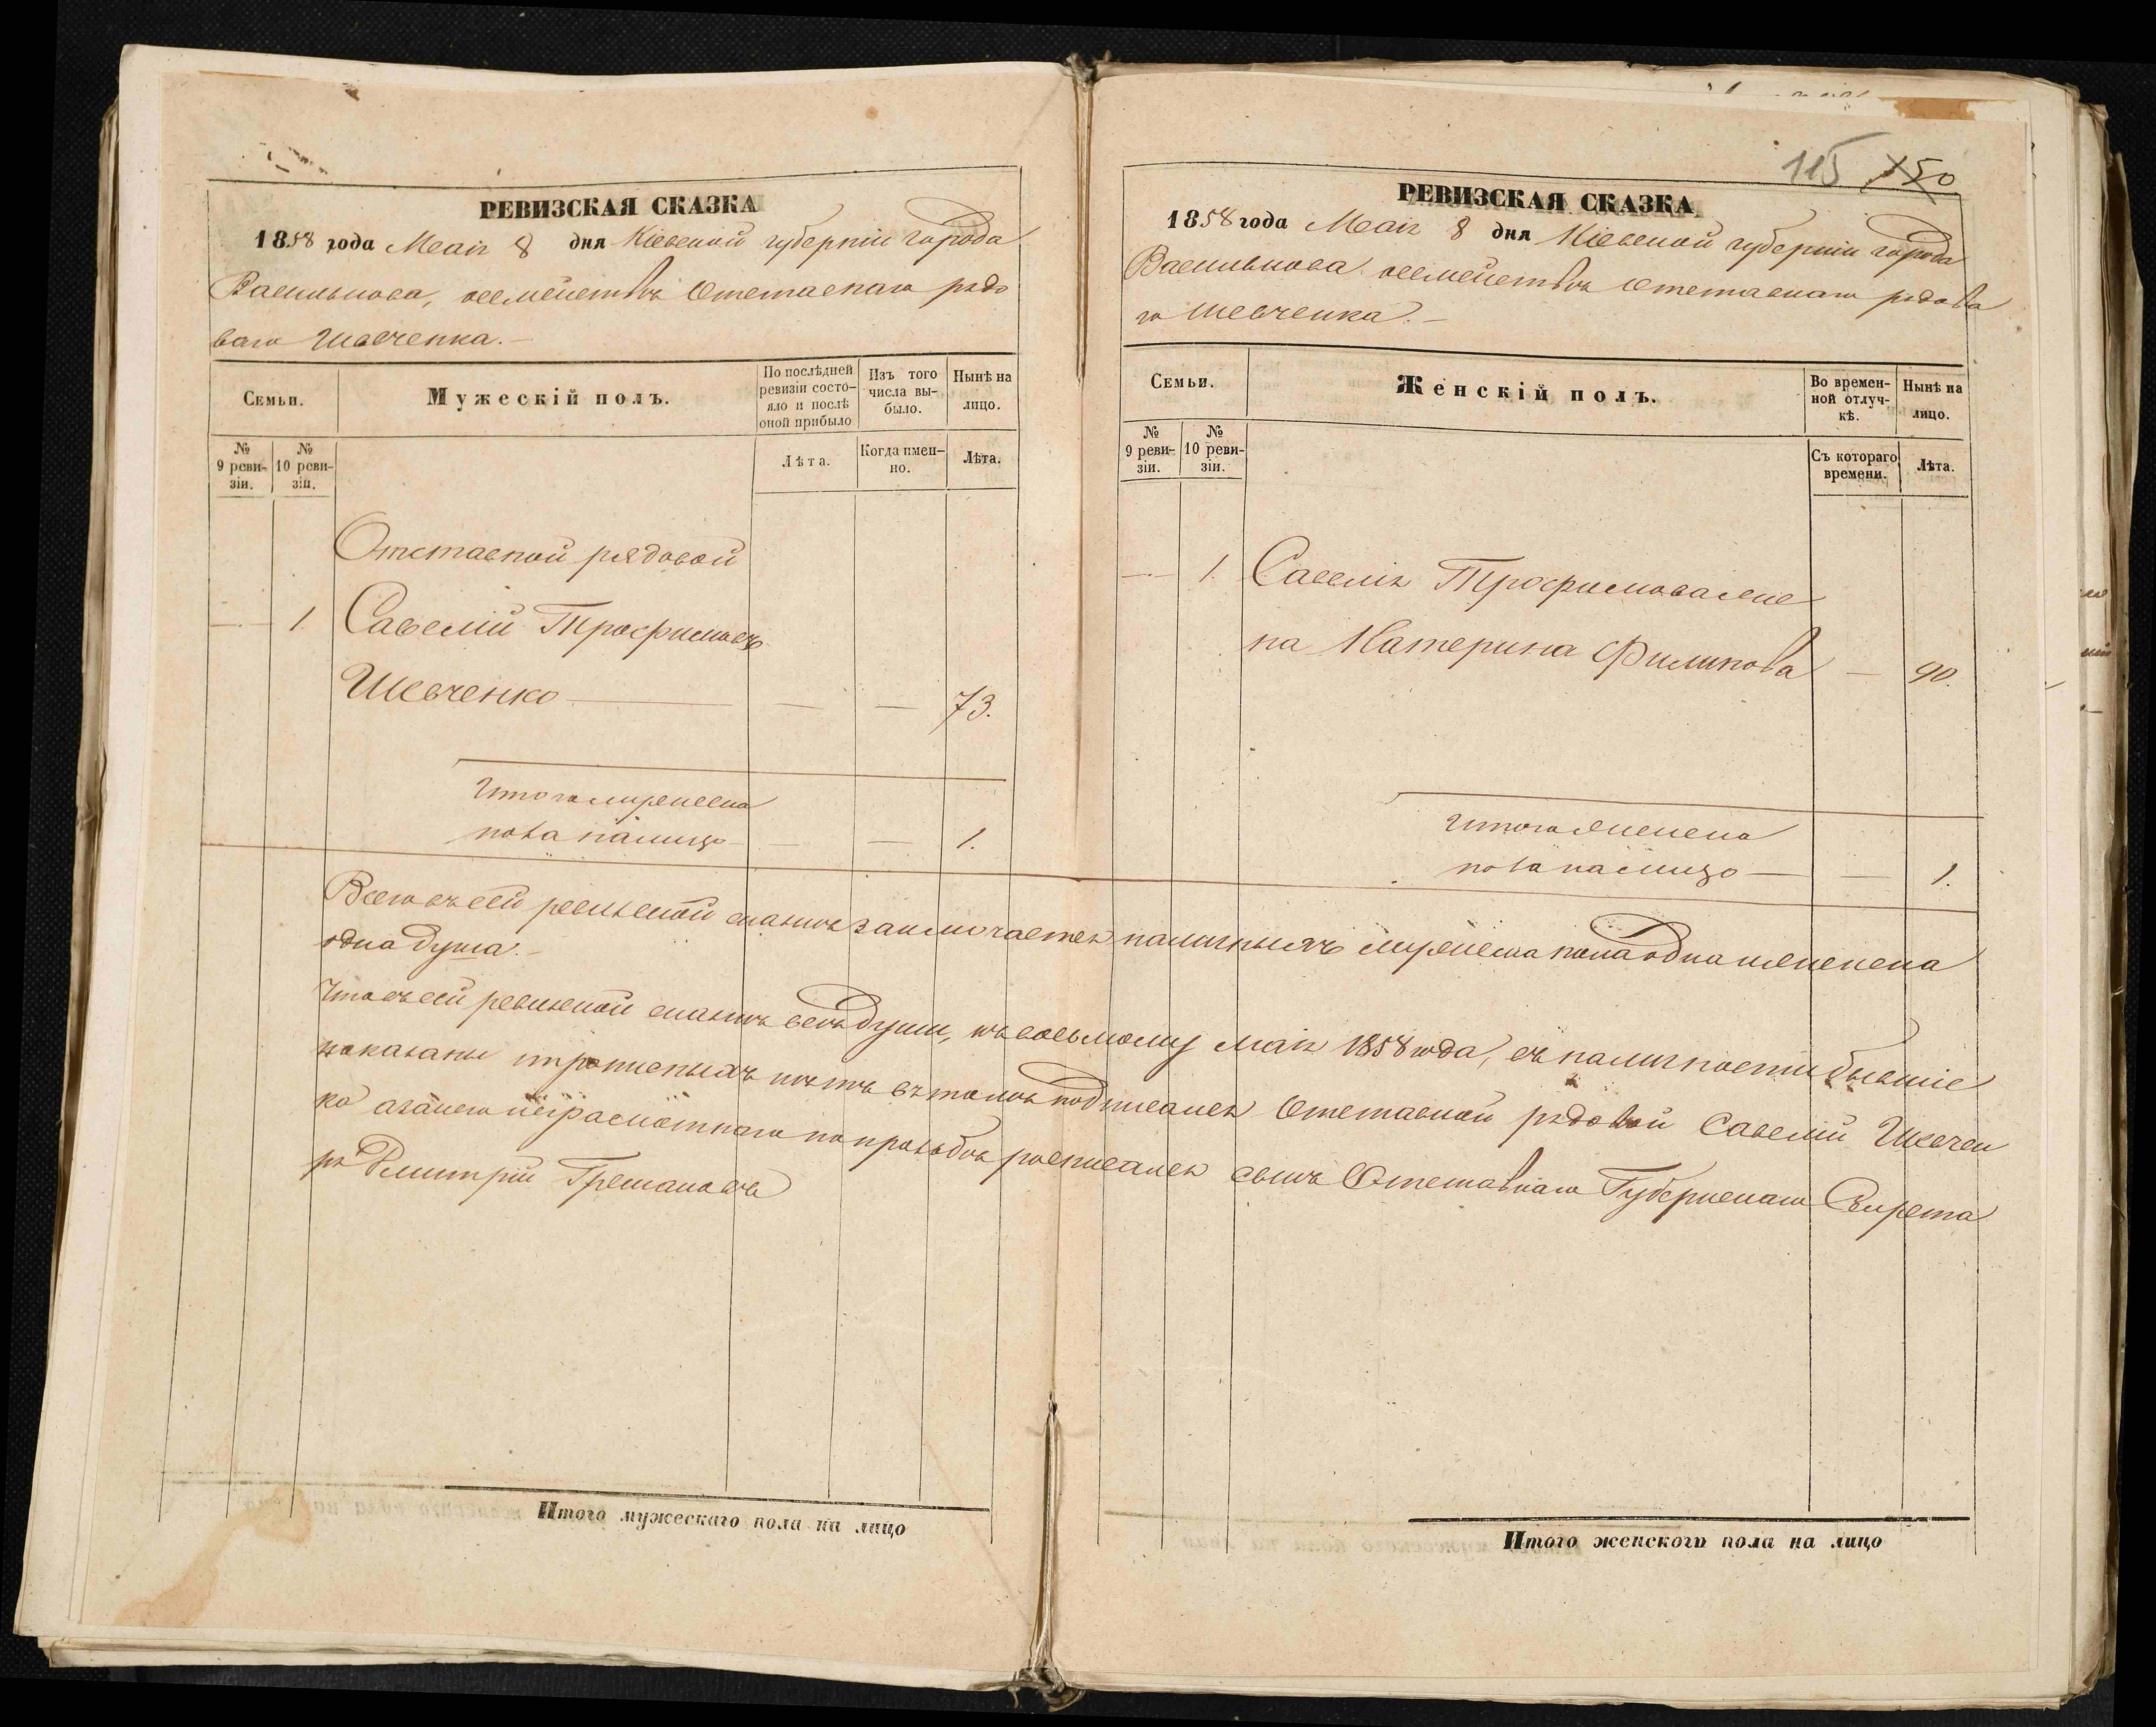 РЕВИЗСКАЯ СКАЗКА
1858 года Маія 8 дня Кіевской губерніи города
Василькова, осемействѣ Отставнаго рядо
ваго Шевченка.
Семьи.
Мужескій полъ.
По послѣдней ревизіи состо-яло и послѣ оной прибыло
Изъ того числа вы-было.
Нынѣ на лицо.
№ 9 реви-зіи.
№ 10 реви-зіи.
Лѣта.
Когда имен-но.
Лѣта.
Отставной рядовой
— 1. Савелій Трофимовъ
Шевченко — — — 73.
Итого мужеска
пола налицо — — 1.
115 150
РЕВИЗСКАЯ СКАЗКА
1858 года Маія 8 дня Кіевской губерніи города
Василькова осемействѣ Отставнаго рядова
го Шевченка.—
Семьи.
Женскій полъ.
Во времен-ной отлуч-кѣ.
Нынѣ на лицо.
№ 9 реви-зіи.
№ 10 реви-зіи.
Съ котораго времени.
Лѣта.
— 1. Савелія Трофимова же
на Катерина Филипова — 40.
Итого женска
пола налицо — — 1.
Всего въ сей ревизской сказкѣ заключается наличныхъ мужеска пола одна и женска
одна душа.—
Что въ сей ревизской сказкѣ всѣ души, къ восьмому Маія 1858 года, въ наличности бывшіе
показаны и прописныхъ нѣтъ въ томъ подписался Отставной рядовой Савелій Шевчен
ко а за него неграмотнаго по прозьбѣ росписался сынъ Отставнаго Губернскаго Секрета
ря Дмитрій
Итого мужескаго пола на лицо
Итого женского пола на лицо